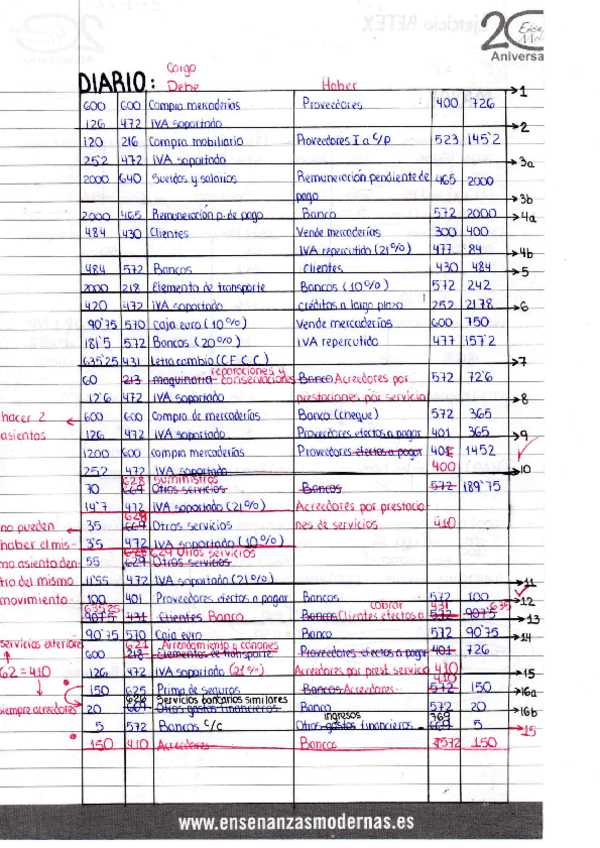 20 Ense
Mo
Aniversa
Cargo
DIARIO: Debe Haber
→1
600 600 Compra mercaderías Proveedores 400 726
126 472 IVA soportado →2
120 216 Compra mobiliario Proveedores I a c/p 523 145'2
25'2 472 IVA soportado →3a
2000 640 Sueldos y salarios Remuneración pendiente de 465 2000
pago →3b
2000 465 Remuneración p. de pago Banco 572 2000 →4a
484 430 Clientes Vende mercaderías 300 400
IVA repercutido (21%) 477 84 →4b
484 572 Bancos Clientes 430 484 →5
2000 218 Elemento de transporte Bancos (10%) 572 242
420 472 IVA soportado créditos a largo plazo 252 2178 →6
90'75 570 Caja euro (10%) Vende mercaderías 600 750
181'5 572 Bancos (20%) IVA repercutido 477 157'2
635'25 431 Letra cambio (C.F.C.C) →7
reparaciones y
60 213 maquinaria conservaciones Banco Acreedores por 572 72'6
12'6 472 IVA soportado prestaciones por servicio →8
hacer 2 ← 600 600 Compra de mercaderías Banco (cheque) 572 365
asientos 126 472 IVA soportado Proveedores efectos a pagar 401 365 →9
1200 600 compra mercaderías Proveedores efectos a pagar 401 1452
252 472 IVA soportado 400 →10
628 suministros
70 669 Otros servicios Bancos 572 189'75
14'7 472 IVA soportado (21%) Acreedores por prestacio
629
no pueden ← 35 669 Otros servicios nes de servicios 410
haber el mis- 3'5 472 IVA soportado (10%)
629 Otros servicios
mo asiento den- 55 629 Otros servicios
tro del mismo 11'55 472 IVA soportado (21%) →11
movimiento. 100 401 Proveedores efectos a pagar Bancos 572 100 →12
635'25 cobrar 431 635
907'5 431 Clientes Banco Bancos Clientes efectos a 572 907'5 →13
90'75 570 Caja euro Banco 572 90'75 →14
621 Arrendamiento y canones
servicios exteriores 600 218 Elementos de transporte Proveedores efectos a pagar 401 726
126 472 IVA soportado (21%) Acreedores por prest. servicio 430 →15
410
62=410 150 625 Prima de seguros Bancos Acreedores 572 150 →16a
626 Servicios bancarios similares
siempre acreedores 20 669 Otros gastos financieros Banco 572 20 →16b
ingresos 769
5 572 Bancos c/c Otros gastos financieros 669 5 →15
150 410 Acreedores Bancos 572 150
www.ensenanzasmodernas.es